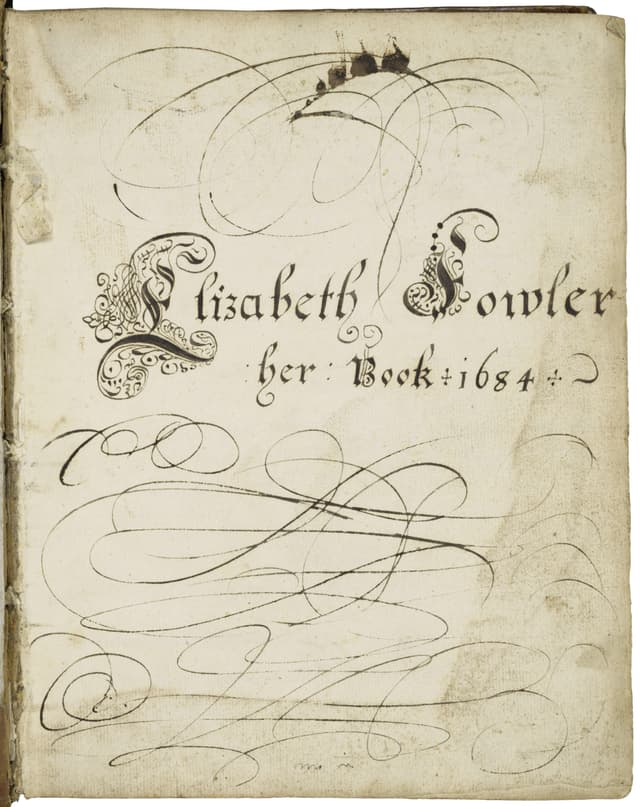 Elizabeth Fowler
: her : Book ÷ 1684 ÷ ~